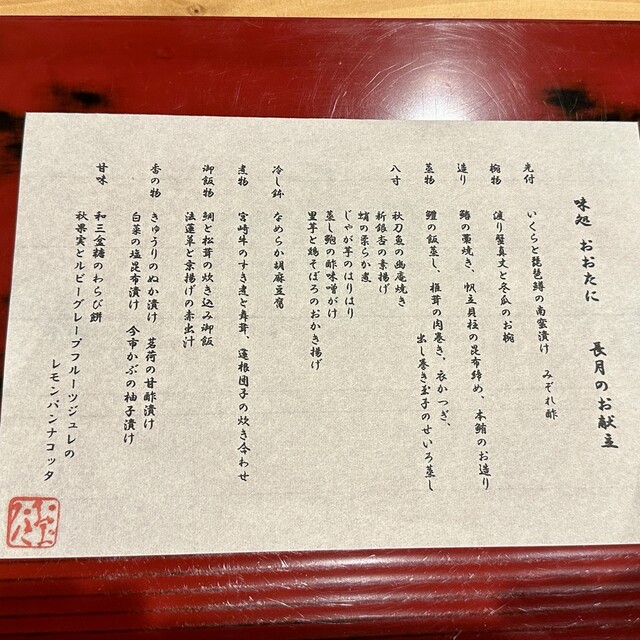 味処 おおたに
長月のお献立
先付 いくらと琵琶鱒の南蛮漬け みぞれ酢
椀物 渡り蟹真丈と冬瓜のお椀
造り 鰆の藁焼き、帆立貝柱の昆布締め、本鮪のお造り
蒸物 鱧の飯蒸し、椎茸の肉巻き、衣かつぎ、
出し巻き玉子のせいろ蒸し
八寸 秋刀魚の幽庵焼き
新銀杏の素揚げ
蛸の柔らか煮
じゃが芋のはりはり
蒸し鮑の酢味噌がけ
里芋と鶏そぼろのおかき揚げ
冷し鉢 なめらか胡麻豆腐
煮物 宮崎牛のすき煮と舞茸、蓮根団子の炊き合わせ
御飯物 鯛と松茸の炊き込み御飯
法蓮草と京揚げの赤出汁
香の物 きゅうりのぬか漬け 茗荷の甘酢漬け
白菜の塩昆布漬け 今市かぶの柚子漬け
甘味 和三盆糖のわらび餅
秋果実とルビーグレープフルーツジュレの
レモンパンナコッタ